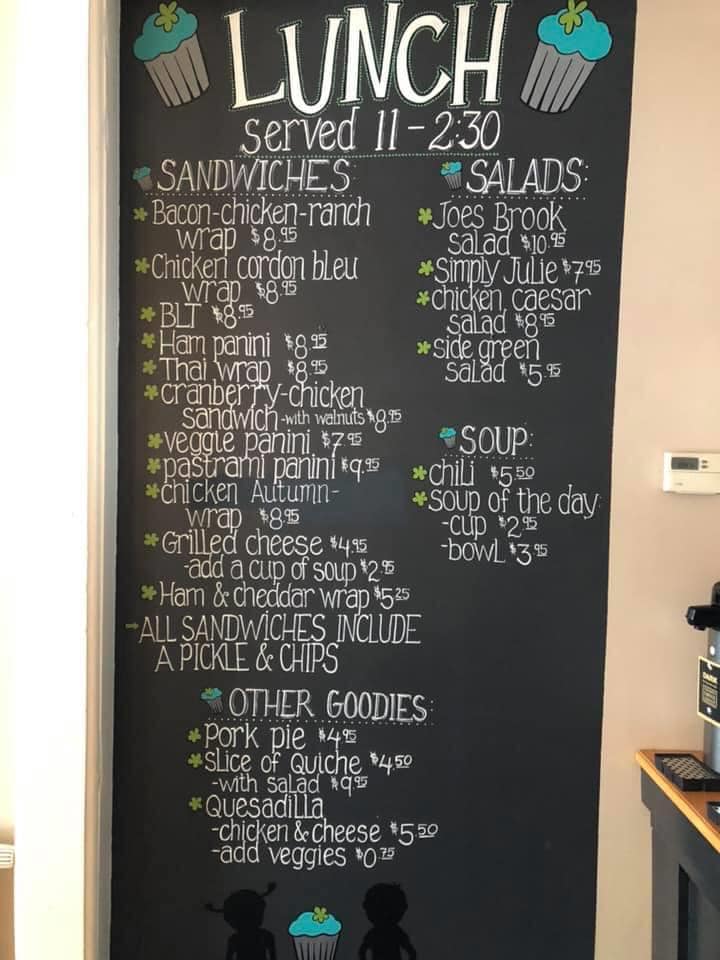 LUNCH
served 11-2:30
SANDWICHES:
Bacon-chicken-ranch
wrap $8.95
Chicken cordon bleu
wrap $8.95
BLT $8.95
Ham panini $8.95
Thai wrap $8.95
cranberry-chicken
sandwich -with walnuts $8.95
veggie panini $7.95
pastrami panini $9.95
chicken Autumn-
wrap $8.95
Grilled cheese $4.95
-add a cup of soup $2.95
Ham & cheddar wrap $5.25
ALL SANDWICHES INCLUDE
A PICKLE & CHIPS
SALADS:
Joes Brook
salad $10.95
Simply Julie $7.95
chicken caesar
salad $8.95
side green
salad $5.95
SOUP:
chili $5.50
soup of the day
-cup $2.95
-bowl $3.95
OTHER GOODIES:
Pork pie $4.95
Slice of Quiche $4.50
-with salad $9.95
Quesadilla
-chicken & cheese $5.50
-add veggies $0.75
DARK